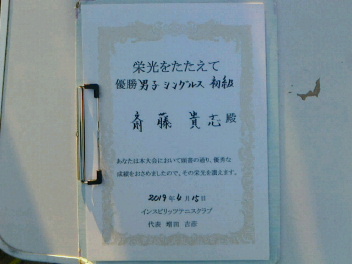 栄光をたたえて
優勝 男子 シングルス 初級
斎藤 貴志 殿
あなたは本大会において頭書の通り、優秀な
成績をおさめましたので、その栄光を讃えます。
2019年 6月 15日
インスピリッツテニスクラブ
代表 増田 吉彦